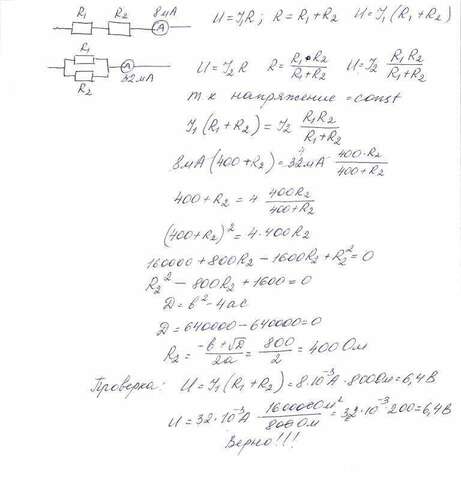 R₁ R₂ 8мА A U=I₁R; R=R₁+R₂ U=I₁(R₁+R₂)
R₁ R₂ A 32мА U=I₂R R=R₁•R₂/R₁+R₂ U=I₂ R₁R₂/R₁+R₂
т к напряжение = const
I₁(R₁+R₂)=I₂ R₁R₂/R₁+R₂
8мА(400+R₂)=32мА· 400·R₂/400+R₂
400+R₂=4 400R₂/400+R₂
(400+R₂)²=4·400R₂
160000+800R₂-1600R₂+R₂²=0
R₂²-800R₂+1600=0
D=b²-4ac
D=640000-640000=0
R₂=-b+√D/2a=800/2=400Ом
Проверка: U=I₁(R₁+R₂)=8·10⁻³А·800Ом=6,4В
U=32·10⁻³А·160000Ом²/800Ом=32·10⁻³·200=6,4В
Верно!!!